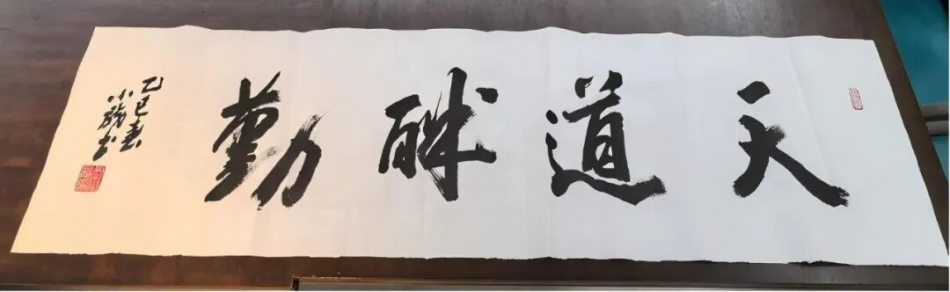 天道酬勤
乙巳春
小城书